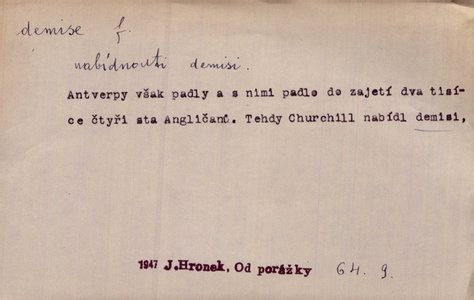 demise f.
nabídnouti demisi.
Antverpy však padly a s nimi padlo do zajetí dva tisí-
ce čtyři sta Angličanů. Tehdy Churchill nabídl demisi,
1947 J.Hronek, Od porážky 64. 9.